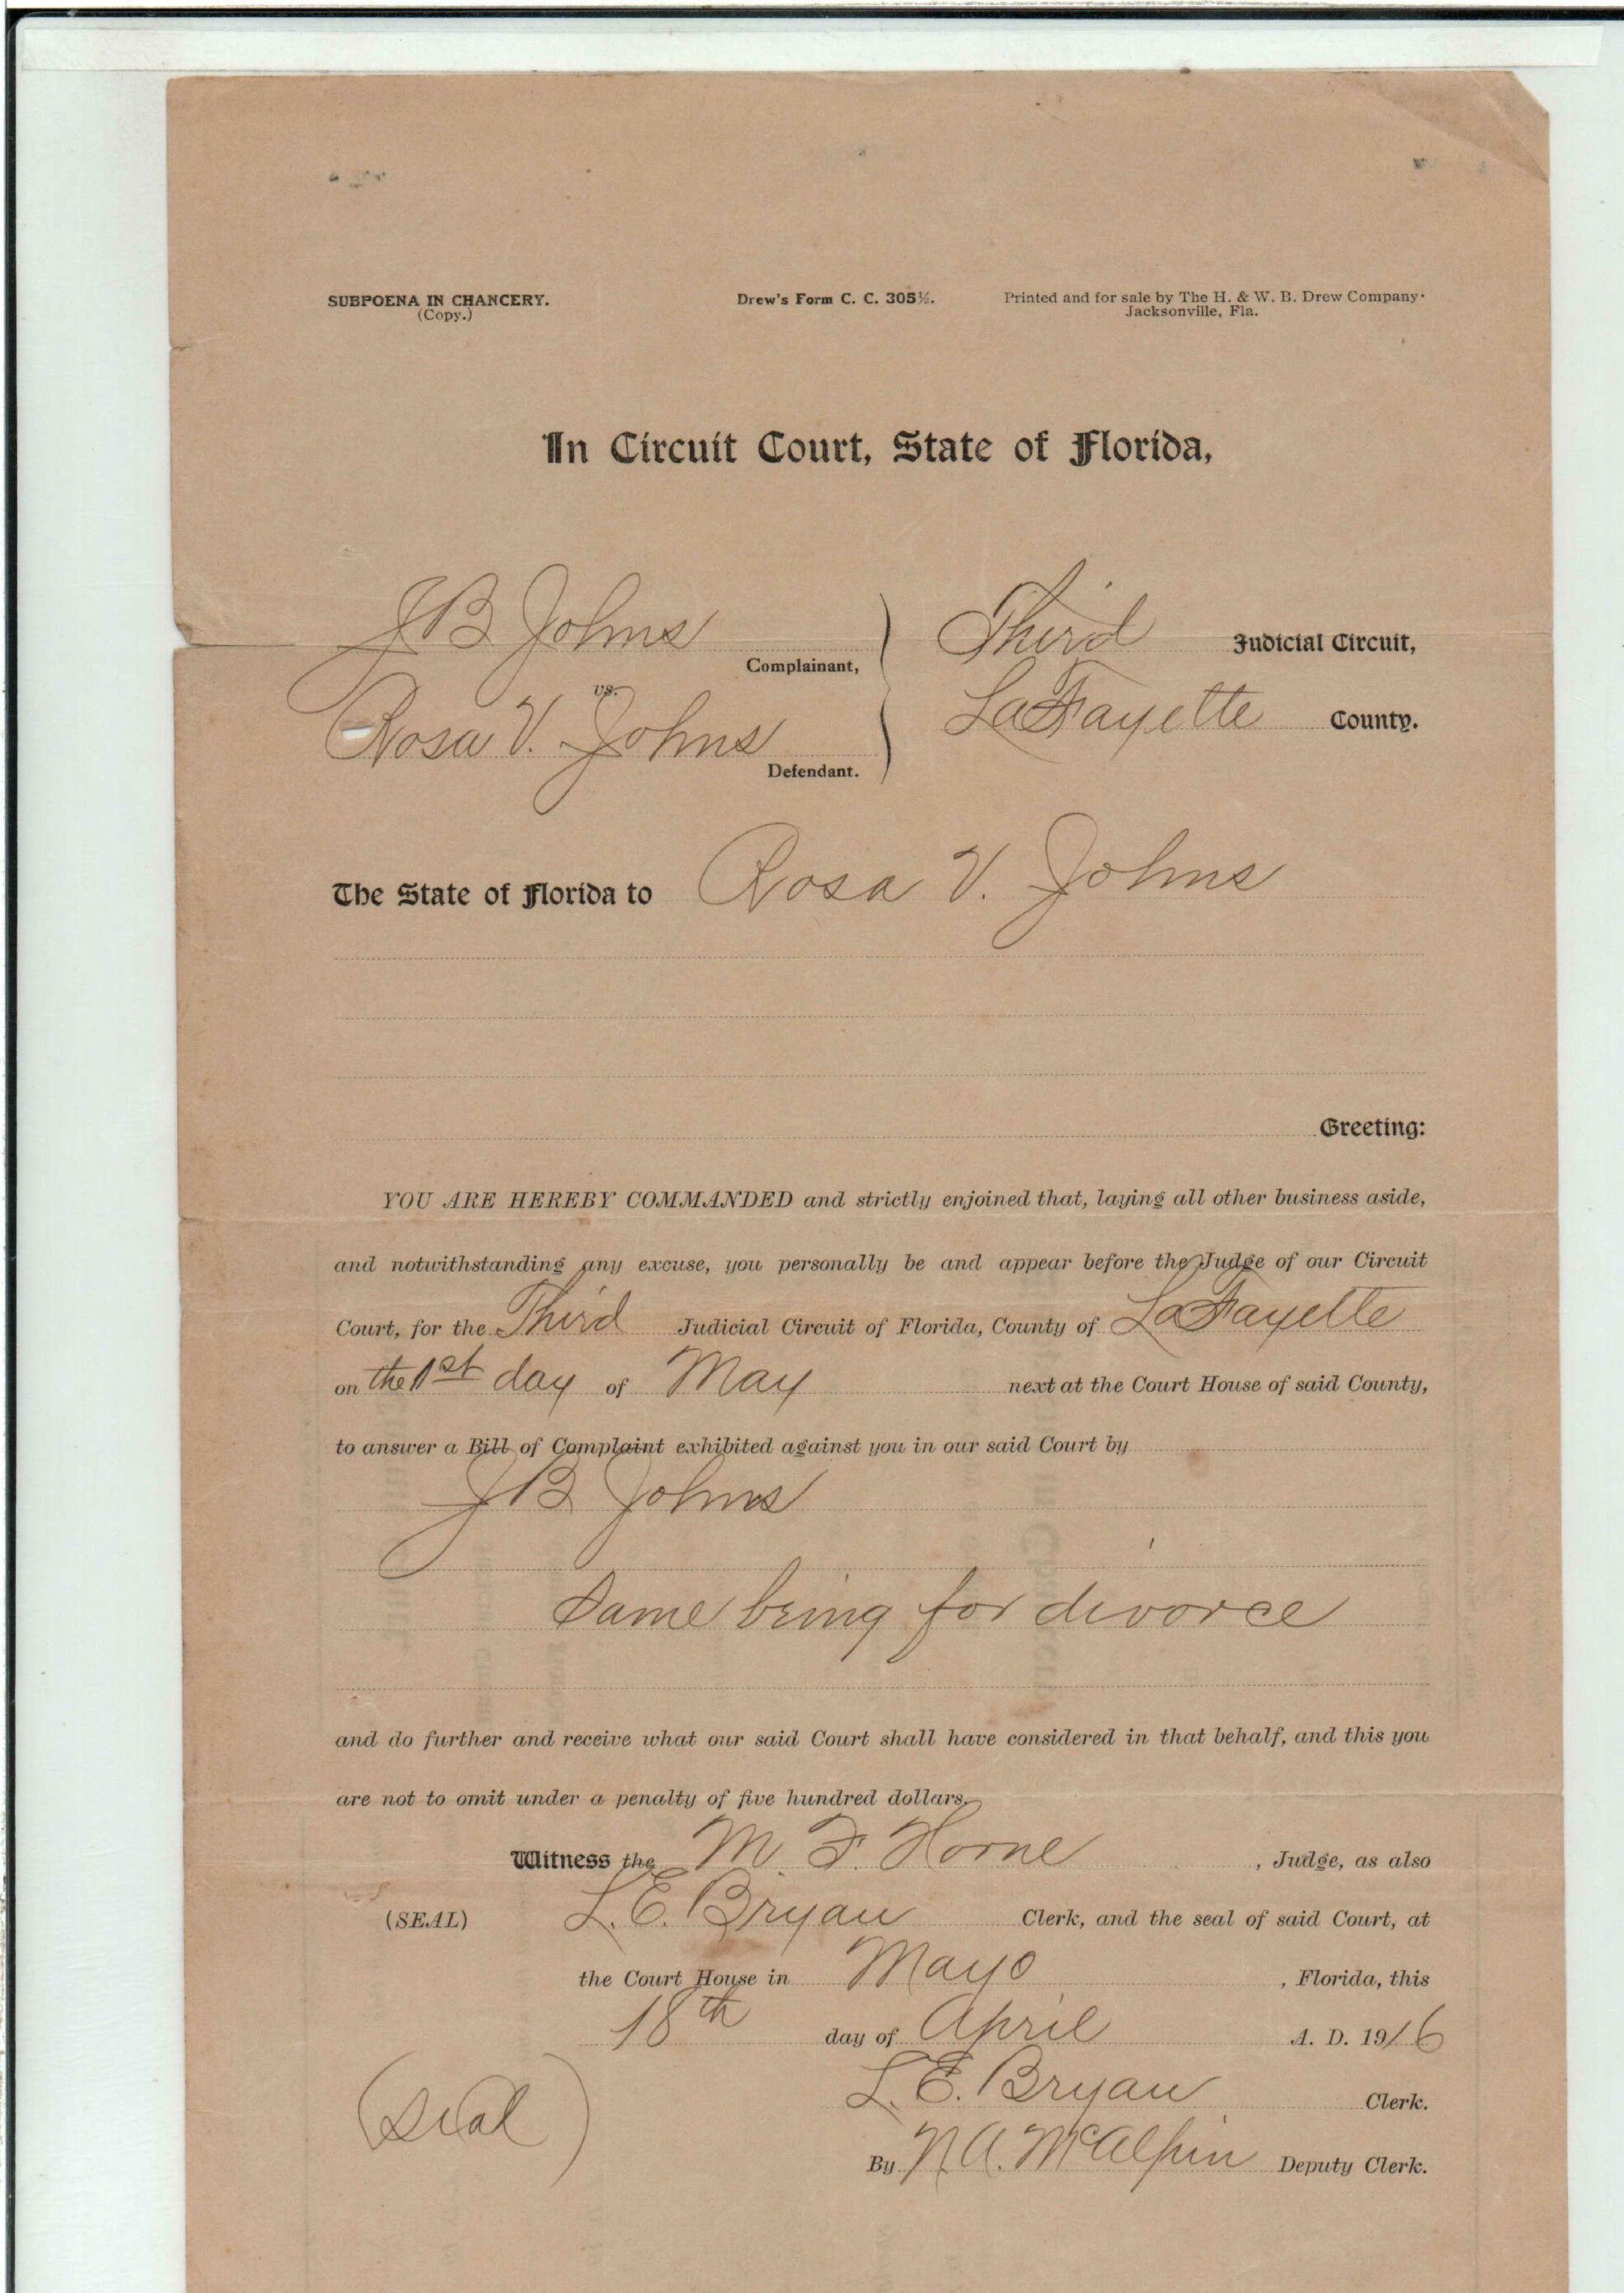 SUBPOENA IN CHANCERY. Drew's Form C. C. 305½. Printed and for sale by The H. & W. B. Drew Company.
(Copy.) Jacksonville, Fla.
In Circuit Court, State of Florida,
J B Johns Third Judicial Circuit,
Complainant,
vs. LaFayette County.
Rosa V. Johns
Defendant.
The State of Florida to Rosa V. Johns
Greeting:
YOU ARE HEREBY COMMANDED and strictly enjoined that, laying all other business aside,
and notwithstanding any excuse, you personally be and appear before the Judge of our Circuit
Court, for the Third Judicial Circuit of Florida, County of LaFayette
on the 1st day of May next at the Court House of said County,
to answer a Bill of Complaint exhibited against you in our said Court by
J B Johns
Same being for divorce
and do further and receive what our said Court shall have considered in that behalf, and this you
are not to omit under a penalty of five hundred dollars.
Witness the M. F. Horne, Judge, as also
(SEAL) L. E. Bryan Clerk, and the seal of said Court, at
the Court House in Mayo, Florida, this
18th day of April A. D. 1916
L. E. Bryan Clerk.
(Seal)
By N. A. McAlpin Deputy Clerk.